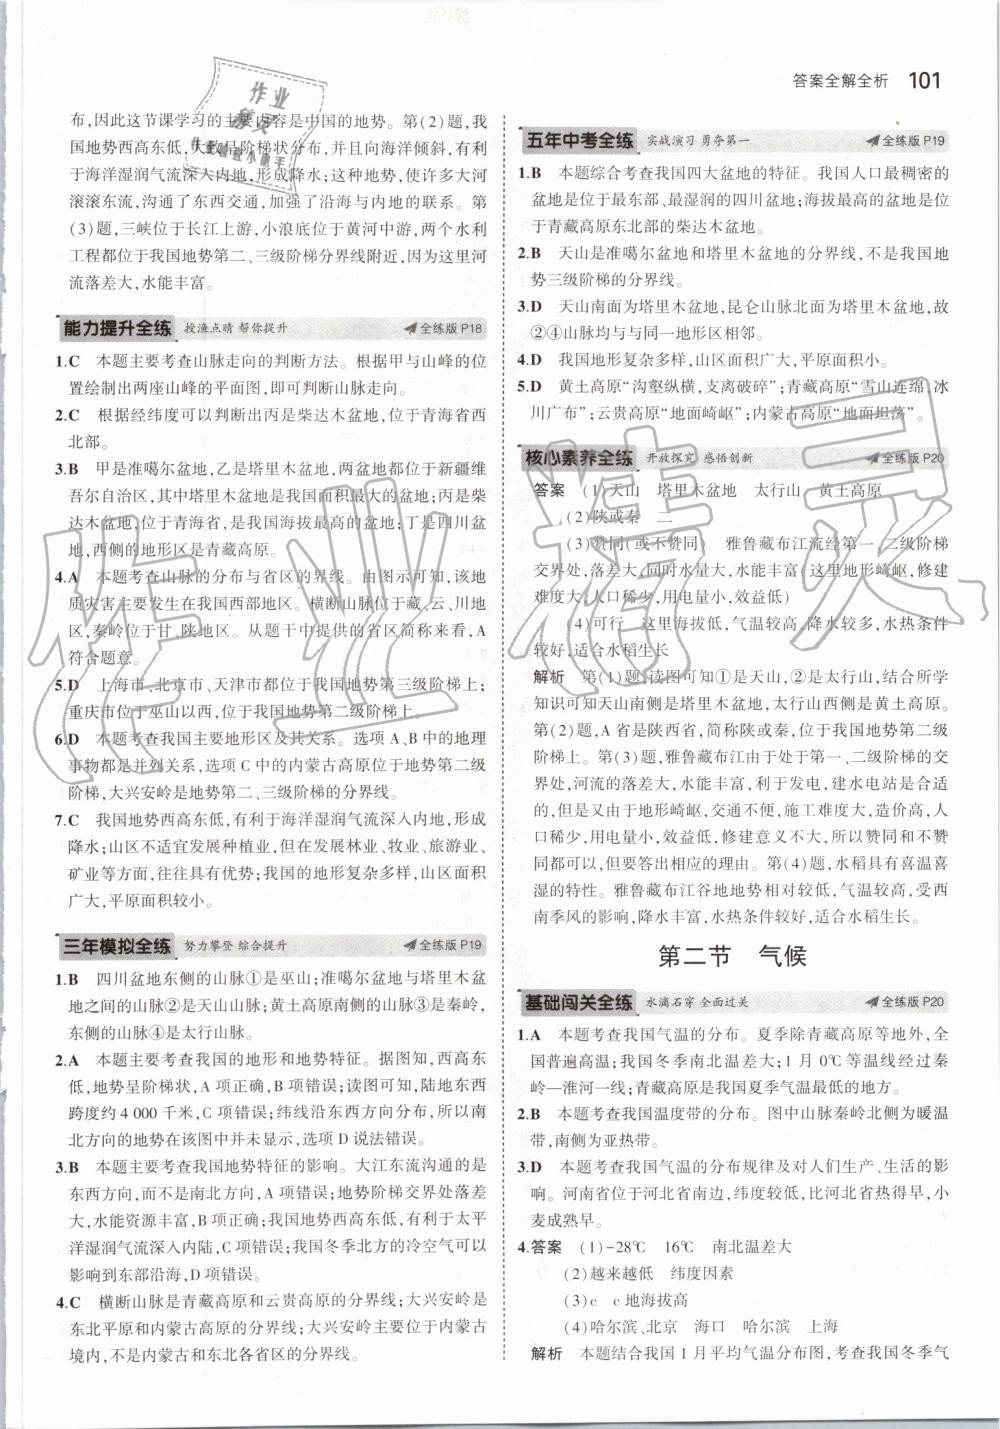 答案全解全析 101
布,因此这节课学习的主要内容是中国的地势。第(2)题,我
国地势西高东低,大致呈阶梯状分布,并且向海洋倾斜,有利
于海洋湿润气流深入内地,形成降水;这种地势,使许多大河
滚滚东流,沟通了东西交通,加强了沿海与内地的联系。第
(3)题,三峡位于长江上游,小浪底位于黄河中游,两个水利
工程都位于我国地势第二、三级阶梯分界线附近,因为这里河
流落差大,水能丰富。
能力提升全练 授渔点睛 帮你提升 全练版 P18
1.C 本题主要考查山脉走向的判断方法。根据甲与山峰的位
置绘制出两座山峰的平面图,即可判断山脉走向。
2.C 根据经纬度可以判断出丙是柴达木盆地,位于青海省西
北部。
3.B 甲是准噶尔盆地,乙是塔里木盆地,两盆地都位于新疆维
吾尔自治区,其中塔里木盆地是我国面积最大的盆地;丙是柴
达木盆地,位于青海省,是我国海拔最高的盆地;丁是四川盆
地,西侧的地形区是青藏高原。
4.A 本题考查山脉的分布与省区的界线。由图示可知,该地
质灾害主要发生在我国西部地区。横断山脉位于藏、云、川地
区,秦岭位于甘、陕地区。从题干中提供的省区简称来看,A
符合题意。
5.D 上海市、北京市、天津市都位于我国地势第三级阶梯上;
重庆市位于巫山以西,位于我国地势第二级阶梯上。
6.D 本题考查我国主要地形区及其关系。选项A、B中的地理
事物都是并列关系,选项C中的内蒙古高原位于地势第二级
阶梯,大兴安岭是地势第二、三级阶梯的分界线。
7.C 我国地势西高东低,有利于海洋湿润气流深入内地,形成
降水;山区不适宜发展种植业,但在发展林业、牧业、旅游业、
矿业等方面,往往具有优势;我国的地形复杂多样,山区面积
广大,平原面积较小。
三年模拟全练 努力攀登 综合提升 全练版 P19
1.B 四川盆地东侧的山脉①是巫山;准噶尔盆地与塔里木盆
地之间的山脉②是天山山脉;黄土高原南侧的山脉③是秦岭,
东侧的山脉④是太行山脉。
2.A 本题主要考查我国的地形和地势特征。据图知,西高东
低,地势呈阶梯状,A项正确,B项错误;读图可知,陆地东西
跨度约4 000千米,C项错误;纬线沿东西方向分布,所以南
北方向的地势在该图中并未显示,选项D说法错误。
3.B 本题主要考查我国地势特征的影响。大江东流沟通的是
东西方向,而不是南北方向,A项错误;地势阶梯交界处落差
大,水能资源丰富,B项正确;我国地势西高东低,有利于太平
洋湿润气流深入内陆,C项错误;我国冬季北方的冷空气可以
影响到东部沿海,D项错误。
4.C 横断山脉是青藏高原和云贵高原的分界线;大兴安岭是
东北平原和内蒙古高原的分界线;大兴安岭主要位于内蒙古
境内,不是内蒙古和东北各省区的分界线。
五年中考全练 实战演习 勇夺第一 全练版 P19
1.B 本题综合考查我国四大盆地的特征。我国人口最稠密的
盆地是位于最东部、最湿润的四川盆地;海拔最高的盆地是位
于青藏高原东北部的柴达木盆地。
2.B 天山是准噶尔盆地和塔里木盆地的分界线,不是我国地
势三级阶梯的分界线。
3.D 天山南面为塔里木盆地,昆仑山脉北面为塔里木盆地,故
②④山脉均与与同一地形区相邻。
4.D 我国地形复杂多样,山区面积广大,平原面积小。
5.D 黄土高原“沟壑纵横,支离破碎”;青藏高原“雪山连绵,冰
川广布”;云贵高原“地面崎岖”;内蒙古高原“地面坦荡”。
核心素养全练 开放探究 感悟创新 全练版 P20
答案 (1)天山 塔里木盆地 太行山 黄土高原
(2)陕或秦 二
(3)赞同(或不赞同) 雅鲁藏布江流经第一、二级阶梯
交界处,落差大,同时水量大,水能丰富(这里地形崎岖,修建
难度大,人口稀少,用电量小,效益低)
(4)可行 这里海拔低,气温较高,降水较多,水热条件
较好,适合水稻生长
解析 第(1)题,读图可知①是天山,②是太行山,结合所学
知识可知天山南侧是塔里木盆地,太行山西侧是黄土高原。
第(2)题,A省是陕西省,简称陕或秦,位于我国地势第二级
阶梯上。第(3)题,雅鲁藏布江由于处于第一、二级阶梯的交
界处,河流的落差大,水能丰富,利于发电,建水电站是合适
的,但又由于地形崎岖,交通不便,施工难度大,造价高,人
口稀少,用电量小,效益低,修建意义不大,所以赞同和不赞
同都可以,但要答出相应的理由。第(4)题,水稻具有喜温喜
湿的特性。雅鲁藏布江谷地地势相对较低,气温较高,受西
南季风的影响,降水丰富,水热条件较好,适合水稻生长。
第二节 气候
基础闯关全练 水滴石穿 全面过关 全练版 P20
1.A 本题考查我国气温的分布。夏季除青藏高原等地外,全
国普遍高温;我国冬季南北温差大;1月0℃等温线经过秦
岭—淮河一线;青藏高原是我国夏季气温最低的地方。
2.B 本题考查我国温度带的分布。图中山脉秦岭北侧为暖温
带,南侧为亚热带。
3.D 本题考查我国气温的分布规律及对人们生产、生活的影
响。河南省位于河北省南边,纬度较低,比河北省热得早,小
麦成熟早。
4.答案 (1)-28℃ 16℃ 南北温差大
(2)越来越低 纬度因素
(3)c c地海拔高
(4)哈尔滨、北京 海口 哈尔滨 上海
解析 本题结合我国1月平均气温分布图,考查我国冬季气
作业精灵